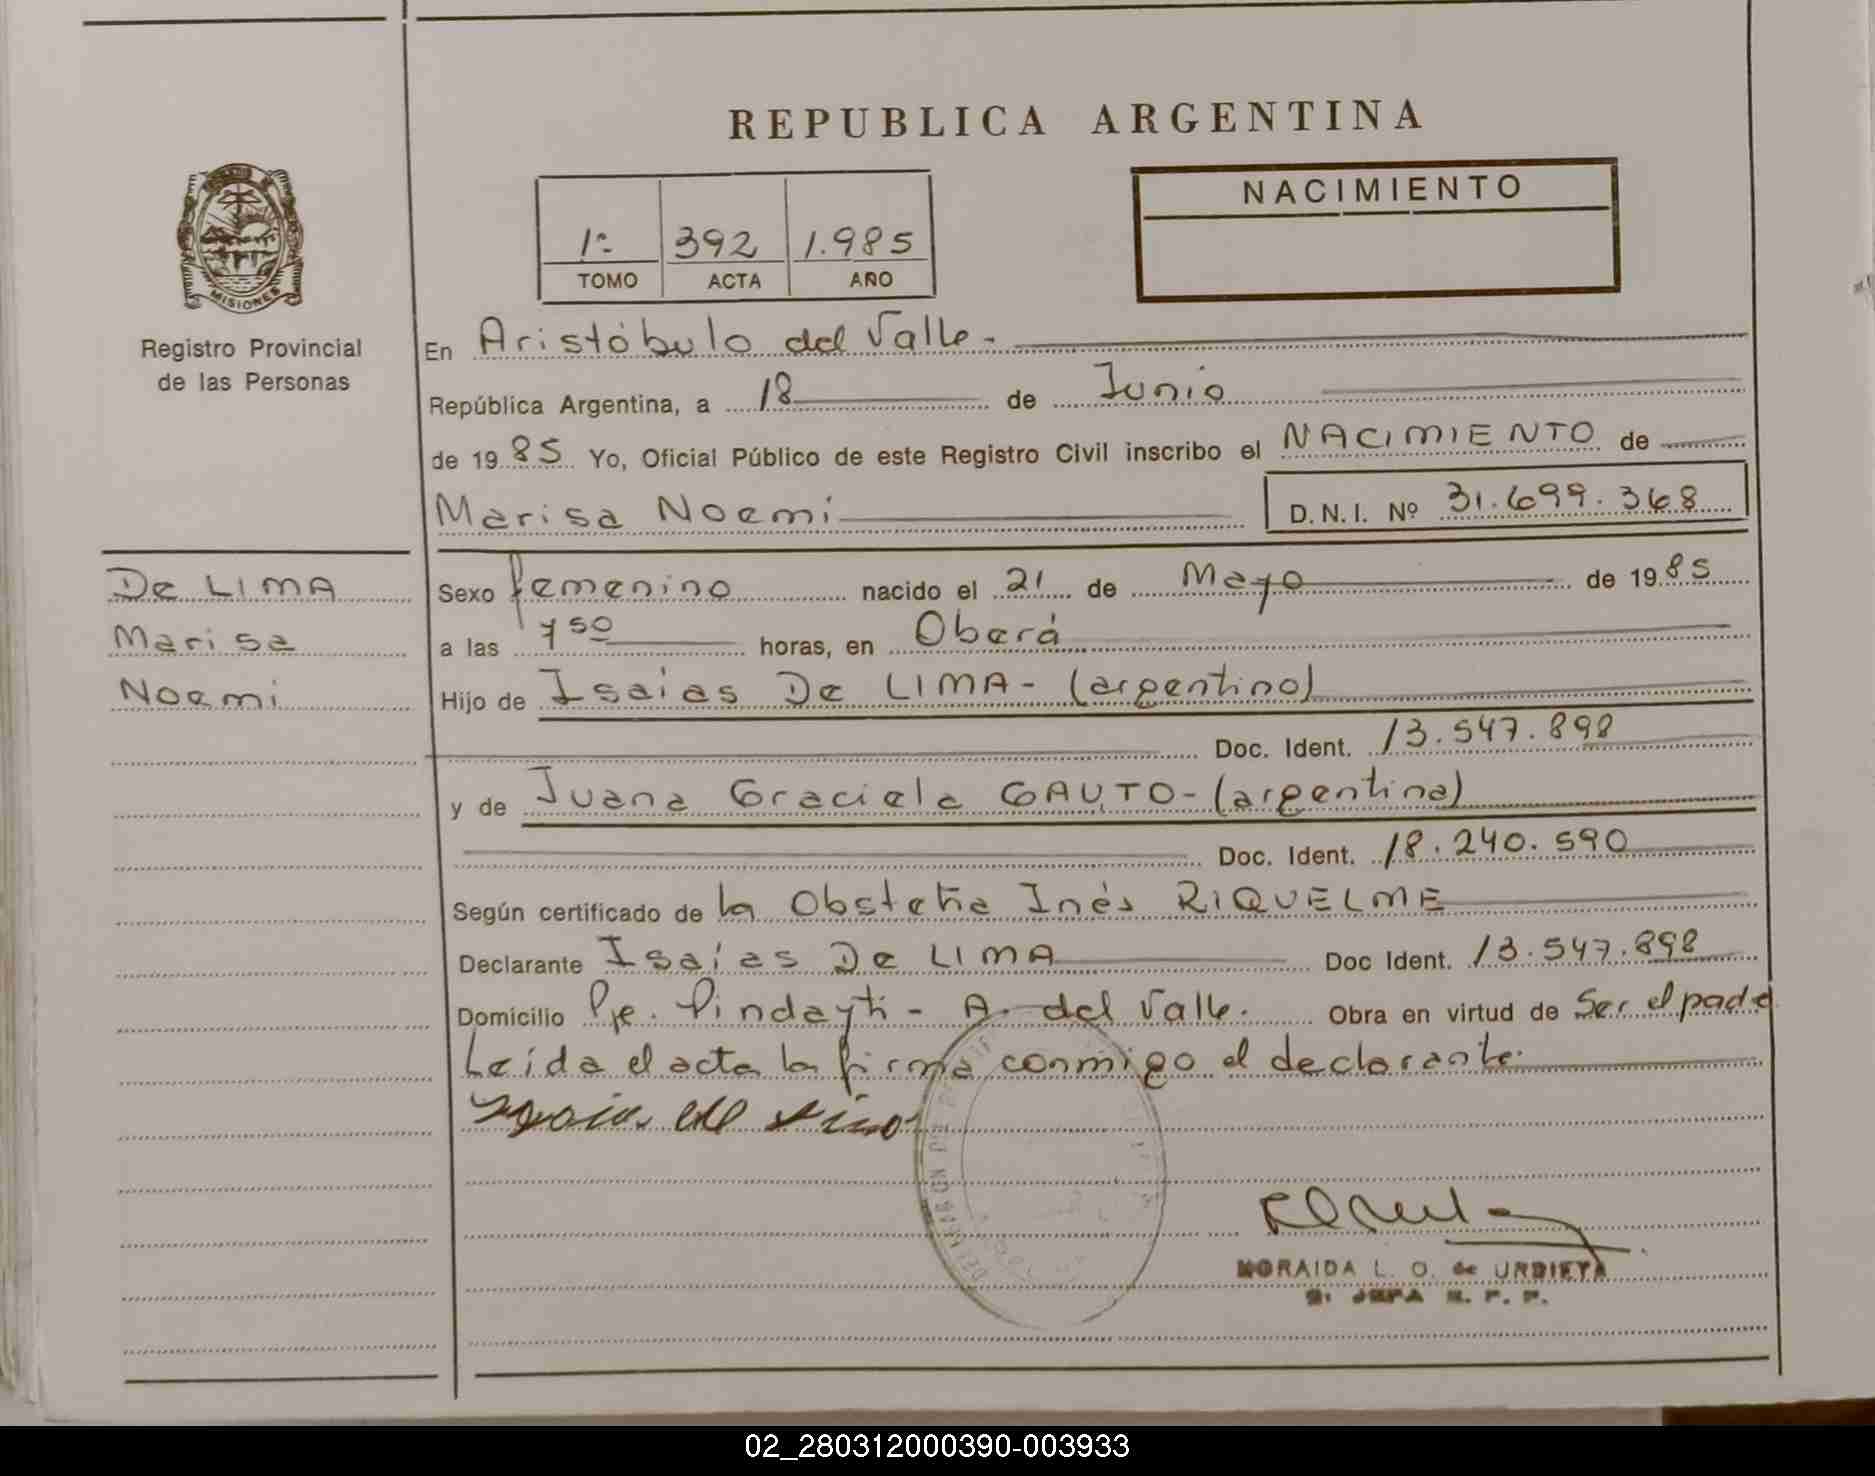 REPUBLICA ARGENTINA
NACIMIENTO
1º 392 1.985
TOMO ACTA AÑO
MISIONES
Registro Provincial
de las Personas
En Aristóbulo del Valle.-
República Argentina, a 18 de Junio
de 1985 Yo, Oficial Público de este Registro Civil inscribo el NACIMIENTO de
Marisa Noemi D.N.I. Nº 31.699.368
De LIMA
Marisa
Noemi
Sexo femenino nacido el 21 de Mayo de 1985
a las 7 50 horas, en Oberá
Hijo de Isaías De LIMA- (argentino)
Doc. Ident. 13.547.898
y de Juana Graciela GAUTO- (argentina)
Doc. Ident. 18.240.590
Según certificado de la Obstetra Inés RIQUELME
Declarante Isaías De LIMA Doc Ident. 13.547.898
Domicilio Pje. Pindayti - A. del Valle. Obra en virtud de Ser el padre
Leída el acta la firma conmigo el declarante.
MORAIDA L. O. de URDIETA
JEFA R. P. P.
02_280312000390-003933